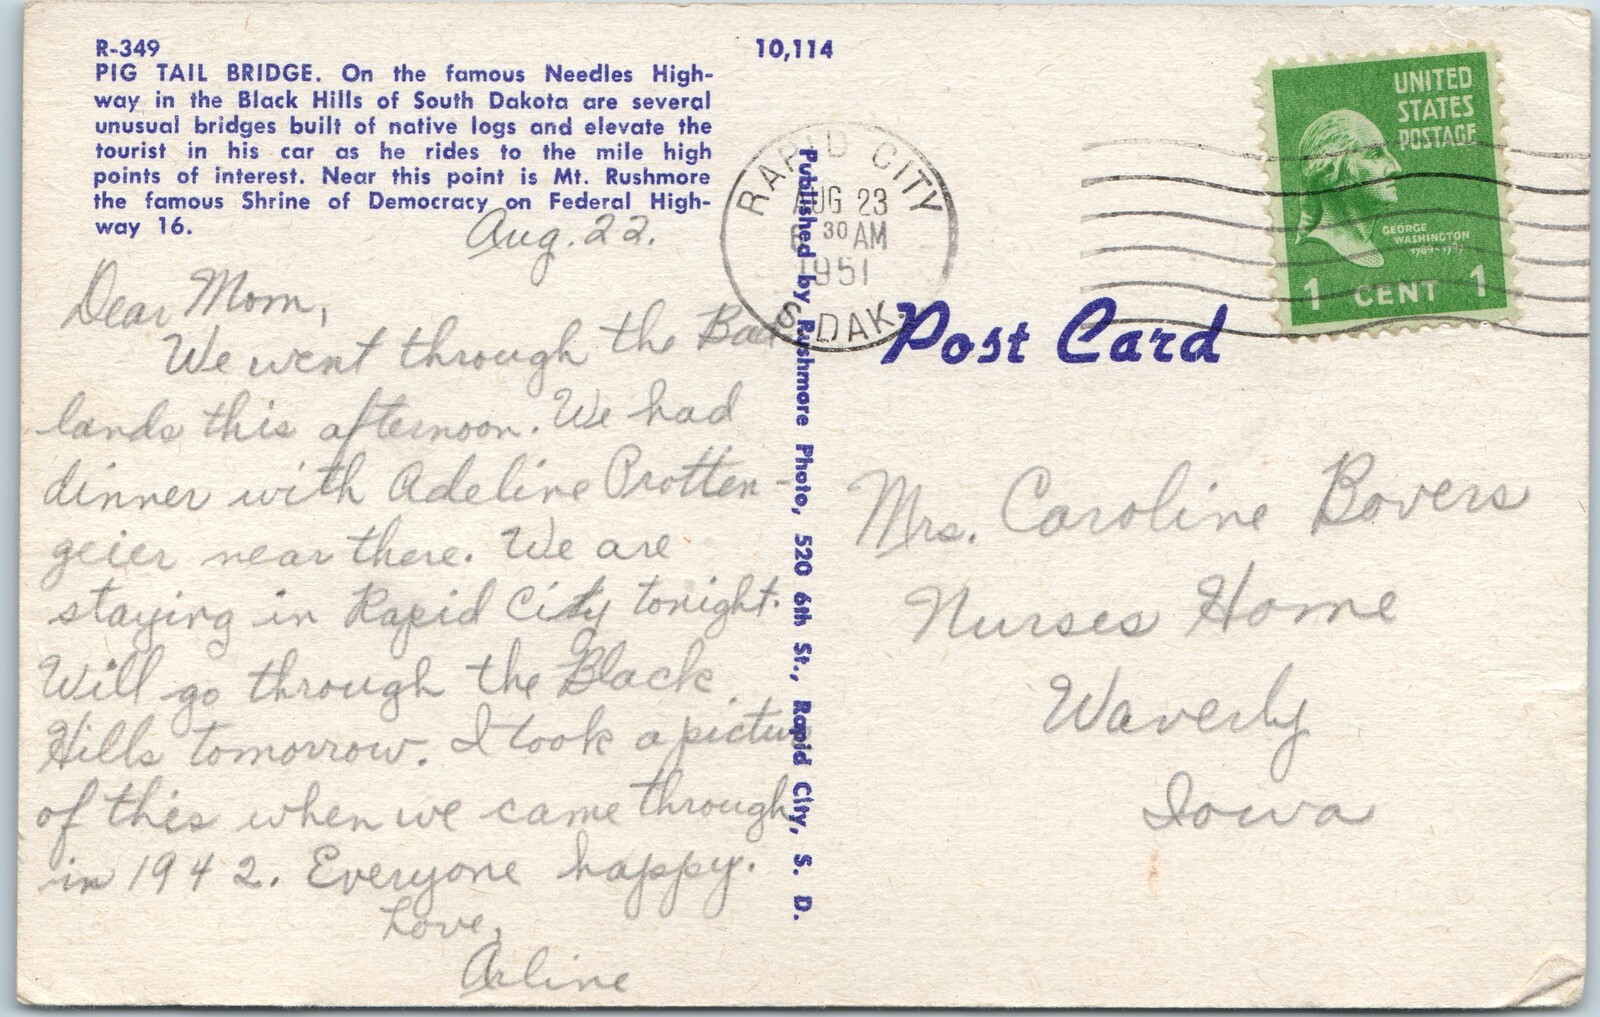 R-349
PIG TAIL BRIDGE. On the famous Needles High-
way in the Black Hills of South Dakota are several
unusual bridges built of native logs and elevate the
tourist in his car as he rides to the mile high
points of interest. Near this point is Mt. Rushmore
the famous Shrine of Democracy on Federal High-
way 16.
Aug. 22.
Dear Mom,
We went through the Bad
lands this afternoon. We had
dinner with Adeline Protten-
geier near there. We are
staying in Rapid City tonight.
Will go through the Black
Hills tomorrow. I took a picture
of this when we came through
in 1942. Everyone happy.
Love,
Arline
10,114
Published by Rushmore Photo, 520 6th St., Rapid City, S. D.
RAPID CITY
AUG 23
30 AM
1951
S. DAK.
UNITED
STATES
POSTAGE
GEORGE
WASHINGTON
1789-1797
1 CENT 1
Post Card
Mrs. Caroline Bovers
Nurses Home
Waverly
Iowa